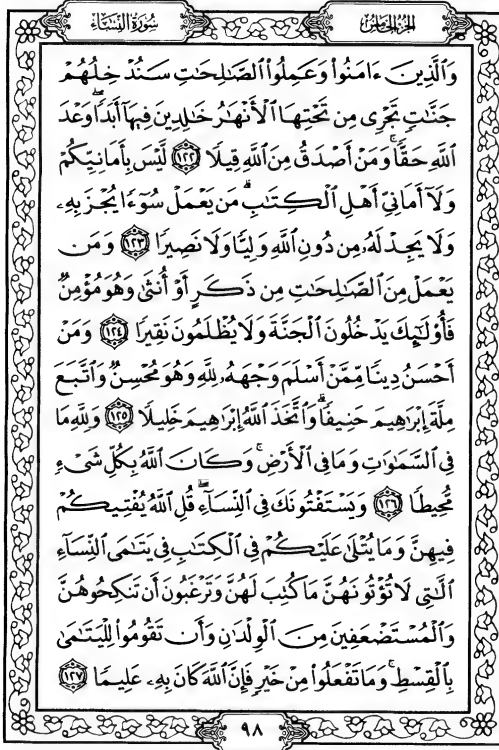 سُورَةُ النِّسَاءِ
الجُزْءُ الخَامِسُ
وَٱلَّذِينَ ءَامَنُوا۟ وَعَمِلُوا۟ ٱلصَّٰلِحَٰتِ سَنُدْخِلُهُمْ
جَنَّٰتٍ تَجْرِى مِن تَحْتِهَا ٱلْأَنْهَٰرُ خَٰلِدِينَ فِيهَآ أَبَدًۭا ۖ وَعْدَ
ٱللَّهِ حَقًّۭا ۚ وَمَنْ أَصْدَقُ مِنَ ٱللَّهِ قِيلًۭا ١٢٢ لَّيْسَ بِأَمَانِيِّكُمْ
وَلَآ أَمَانِىِّ أَهْلِ ٱلْكِتَٰبِ ۗ مَن يَعْمَلْ سُوٓءًۭا يُجْزَ بِهِۦ
وَلَا يَجِدْ لَهُۥ مِن دُونِ ٱللَّهِ وَلِيًّۭا وَلَا نَصِيرًۭا ١٢٣ وَمَن
يَعْمَلْ مِنَ ٱلصَّٰلِحَٰتِ مِن ذَكَرٍ أَوْ أُنثَىٰ وَهُوَ مُؤْمِنٌۭ
فَأُو۟لَٰٓئِكَ يَدْخُلُونَ ٱلْجَنَّةَ وَلَا يُظْلَمُونَ نَقِيرًۭا ١٢٤ وَمَنْ
أَحْسَنُ دِينًۭا مِّمَّنْ أَسْلَمَ وَجْهَهُۥ لِلَّهِ وَهُوَ مُحْسِنٌۭ وَٱتَّبَعَ
مِلَّةَ إِبْرَٰهِيمَ حَنِيفًۭا ۗ وَٱتَّخَذَ ٱللَّهُ إِبْرَٰهِيمَ خَلِيلًۭا ١٢٥ وَلِلَّهِ مَا
فِى ٱلسَّمَٰوَٰتِ وَمَا فِى ٱلْأَرْضِ ۚ وَكَانَ ٱللَّهُ بِكُلِّ شَىْءٍۢ
مُّحِيطًۭا ١٢٦ وَيَسْتَفْتُونَكَ فِى ٱلنِّسَآءِ ۖ قُلِ ٱللَّهُ يُفْتِيكُمْ
فِيهِنَّ وَمَا يُتْلَىٰ عَلَيْكُمْ فِى ٱلْكِتَٰبِ فِى يَتَٰمَى ٱلنِّسَآءِ
ٱلَّٰتِى لَا تُؤْتُونَهُنَّ مَا كُتِبَ لَهُنَّ وَتَرْغَبُونَ أَن تَنكِحُوهُنَّ
وَٱلْمُسْتَضْعَفِينَ مِنَ ٱلْوِلْدَٰنِ وَأَن تَقُومُوا۟ لِلْيَتَٰمَىٰ
بِٱلْقِسْطِ ۚ وَمَا تَفْعَلُوا۟ مِنْ خَيْرٍۢ فَإِنَّ ٱللَّهَ كَانَ بِهِۦ عَلِيمًۭا ١٢٧
٩٨